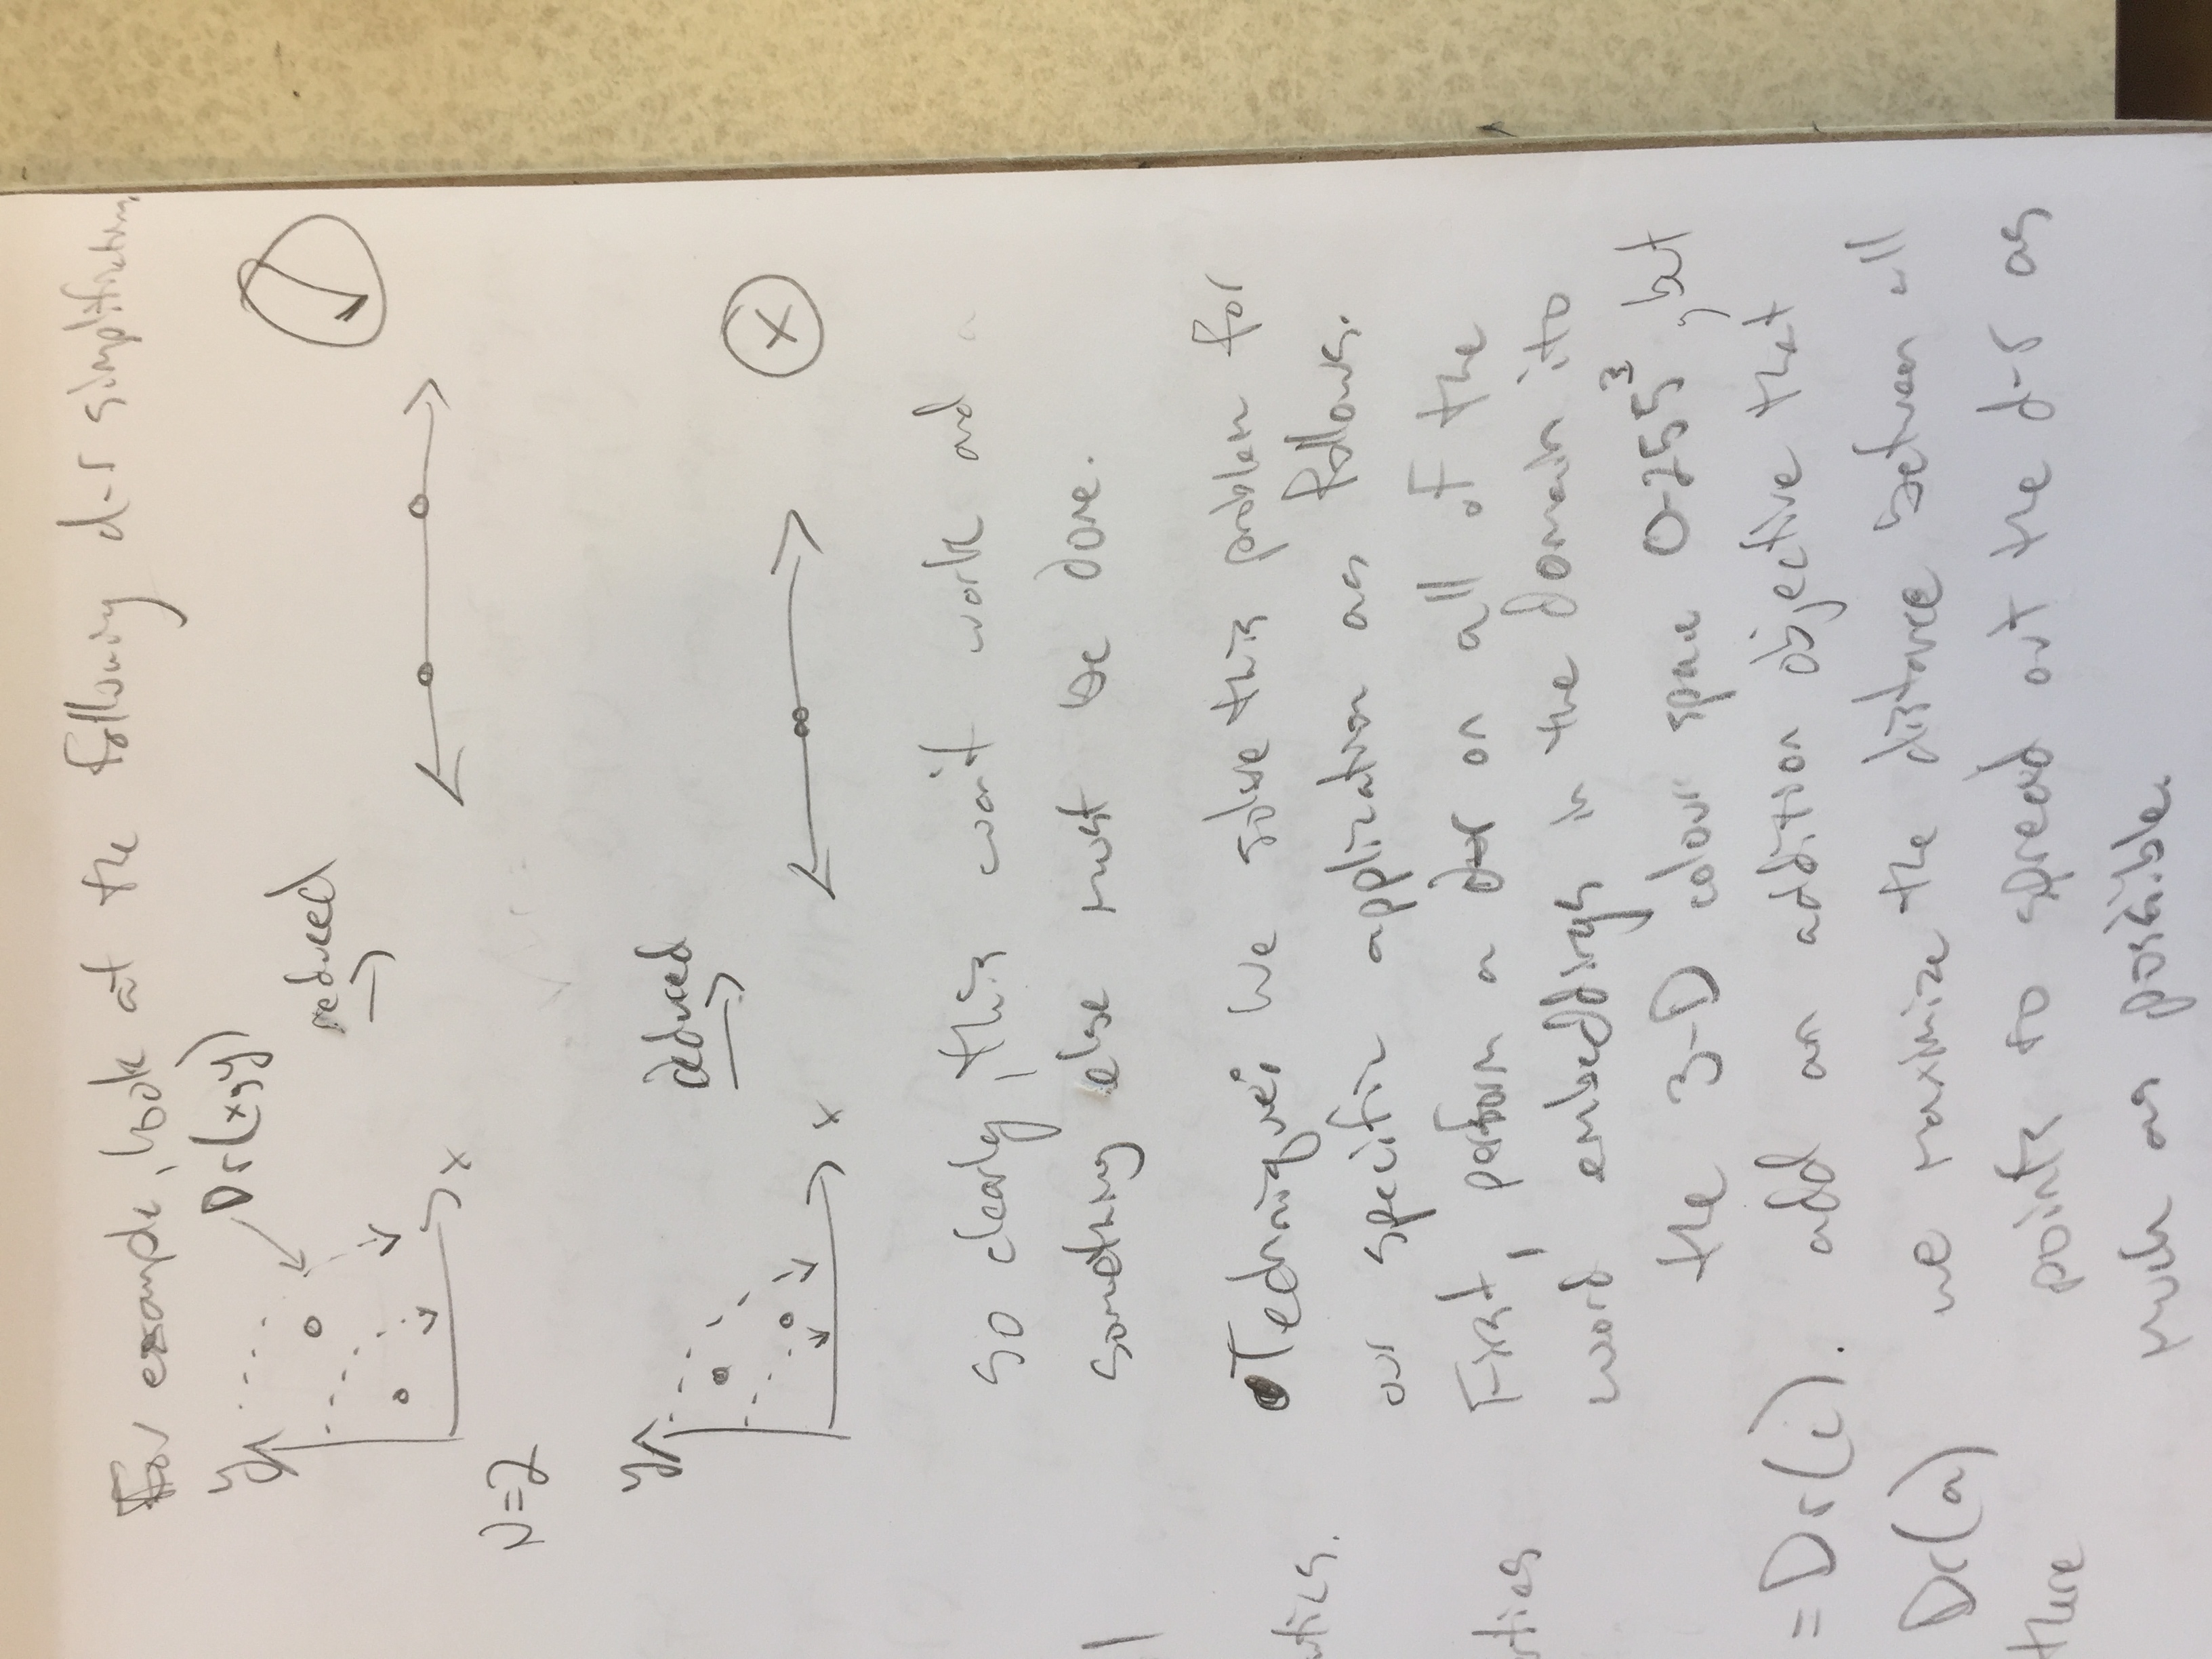 For example, look at the following d-r simplification.
y
Dr(x,y)
reduced
x
N=2
y
reduced
x
So clearly, this won't work and a
something else must be done.
Technique: We solve this problem for
our specific application as follows.
First, perform a d-r on all of the
word embeddings in the domain ito
the 3-D colour space 0-255³, but
add an addition objective that
we maximize the distance between all
points to spread out the d-r as
much as possible.
= Dr(c).
Dr(a)
there